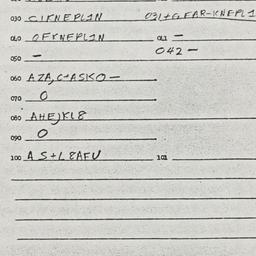 030 CIKNEPL1N 031+GFAR-KNEPL1
040 OFKNEPL1N 041 —
050 — 042 —
060 AZA,C+ASKO—
070 O
080 AHE)KL8
090 O
100 AS+L8AFU 101